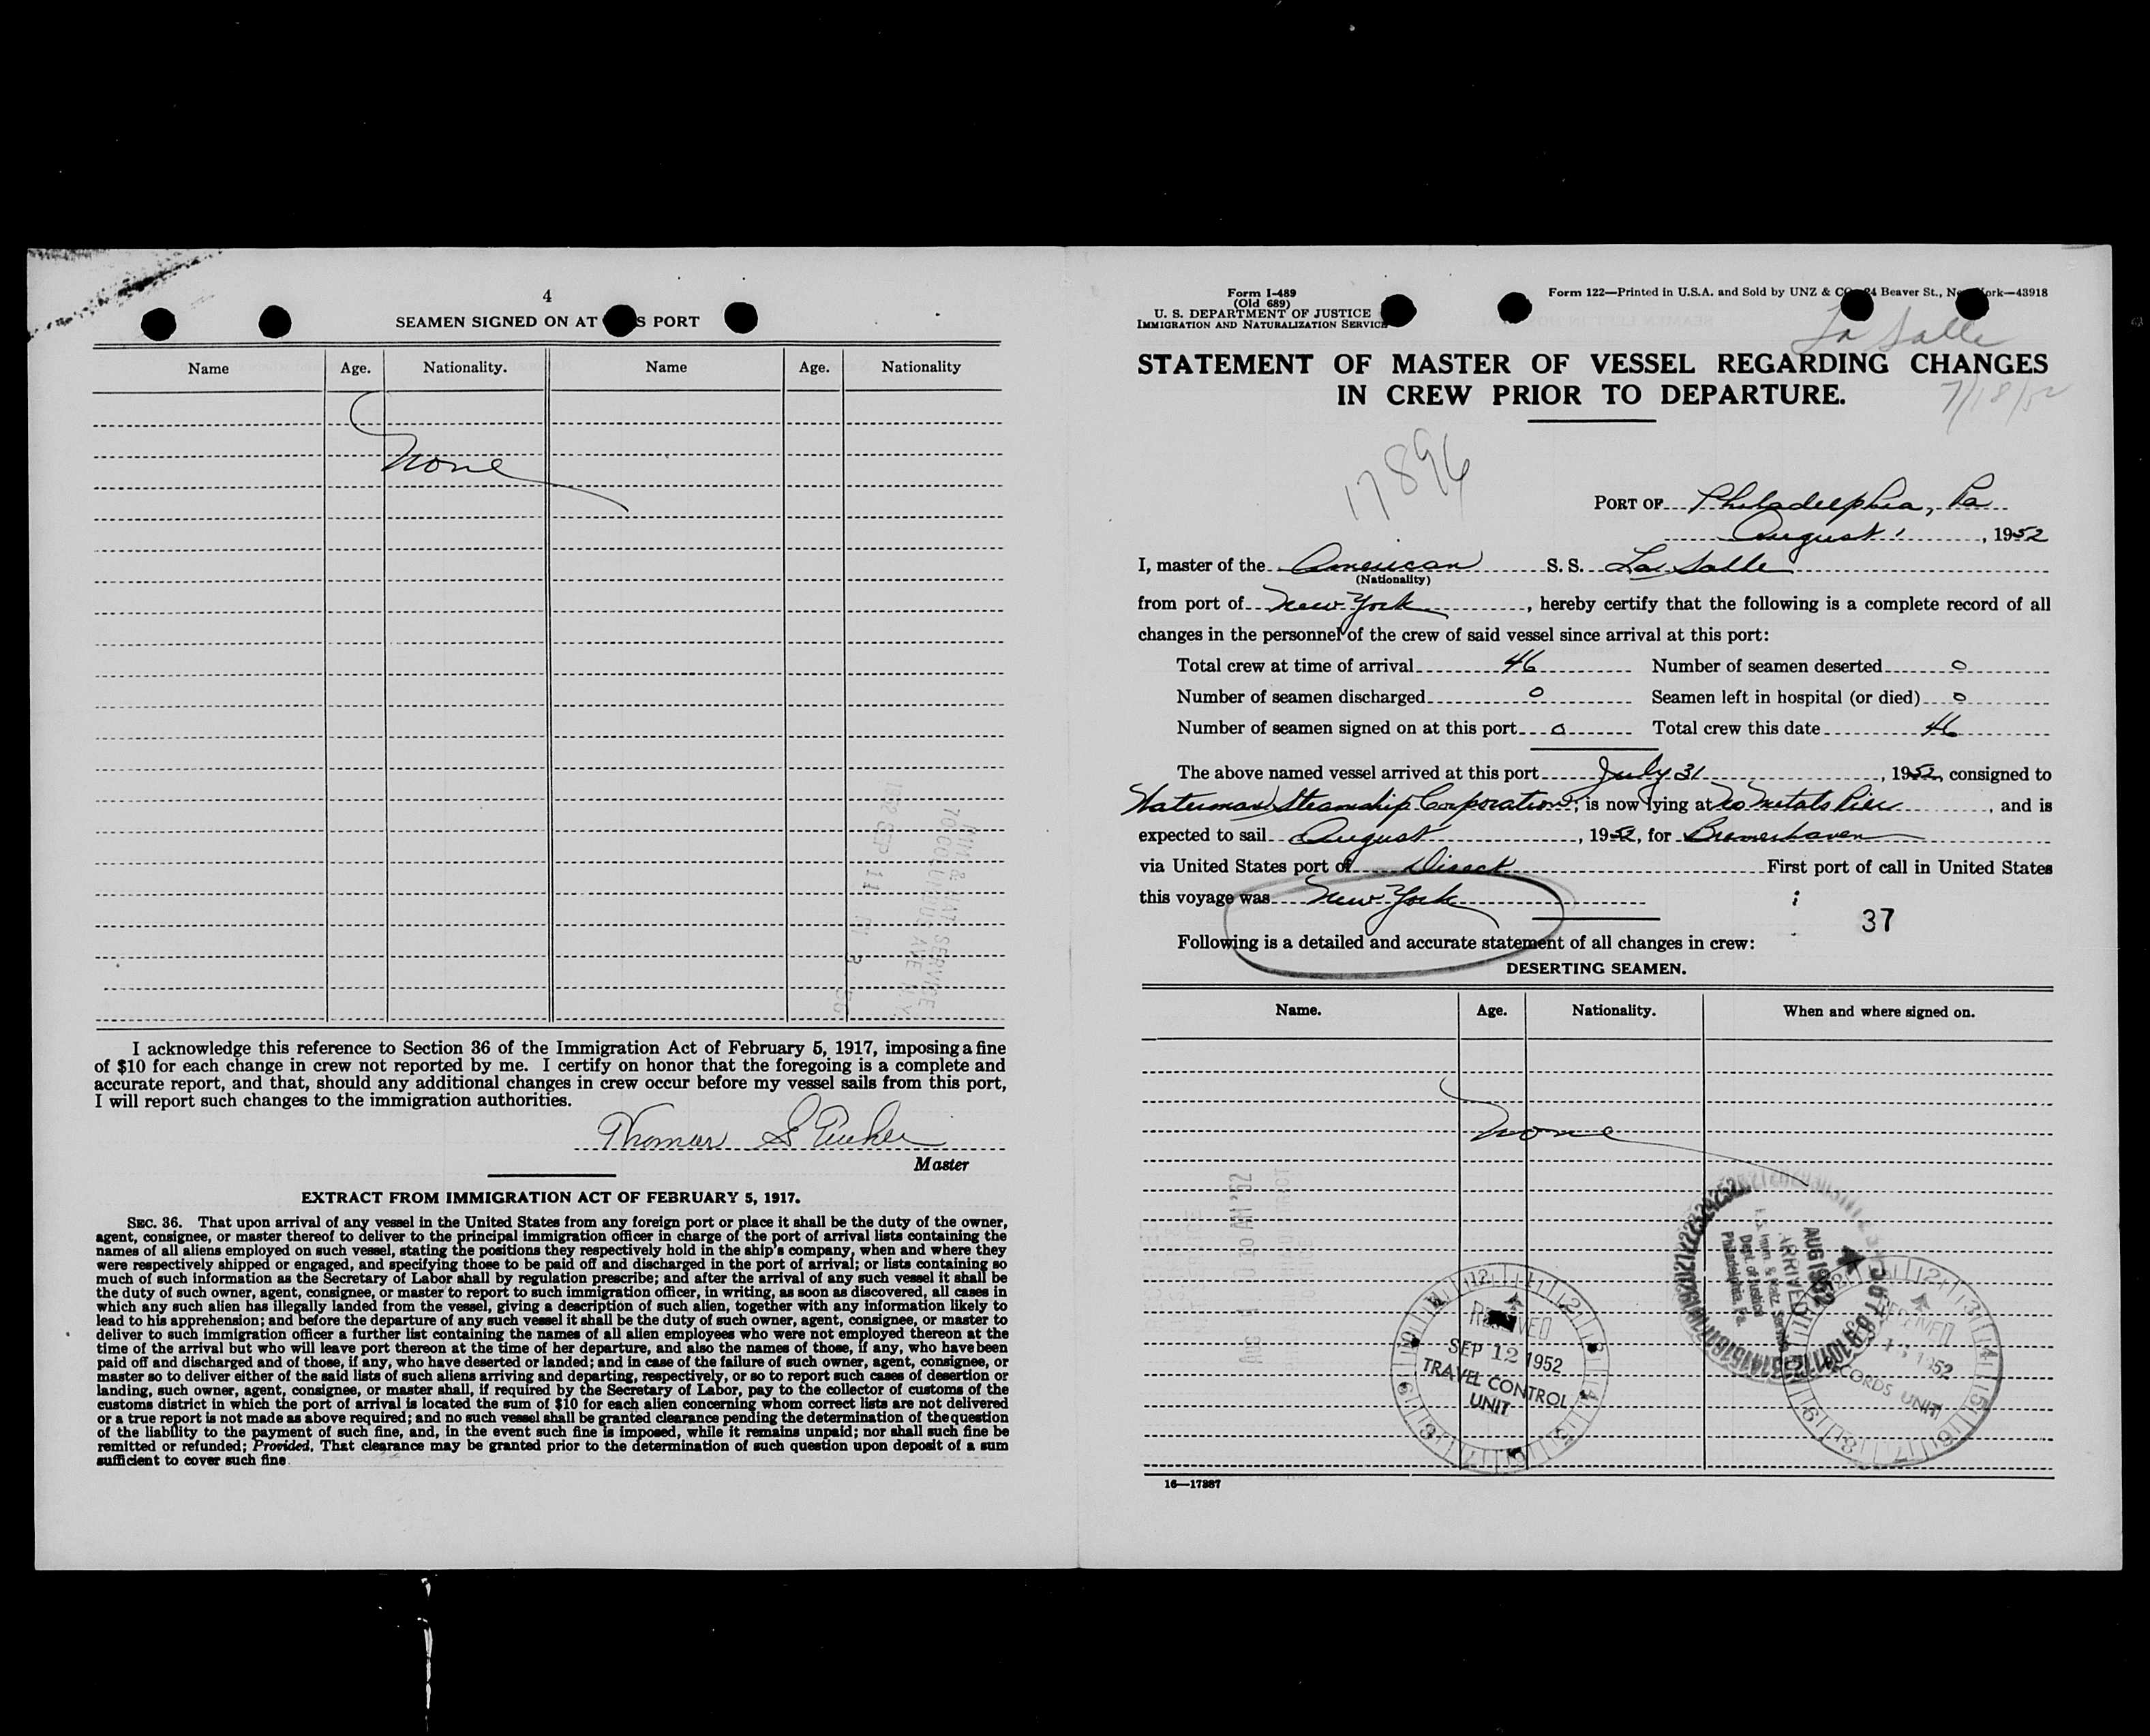 4
SEAMEN SIGNED ON AT S PORT
Name Age. Nationality. Name Age. Nationality
None
I acknowledge this reference to Section 36 of the Immigration Act of February 5, 1917, imposing a fine
of $10 for each change in crew not reported by me. I certify on honor that the foregoing is a complete and
accurate report, and that, should any additional changes in crew occur before my vessel sails from this port,
I will report such changes to the immigration authorities.
Thomas S
Master
EXTRACT FROM IMMIGRATION ACT OF FEBRUARY 5, 1917.
SEC. 36. That upon arrival of any vessel in the United States from any foreign port or place it shall be the duty of the owner,
agent, consignee, or master thereof to deliver to the principal immigration officer in charge of the port of arrival lists containing the
names of all aliens employed on such vessel, stating the positions they respectively hold in the ship's company, when and where they
were respectively shipped or engaged, and specifying those to be paid off and discharged in the port of arrival; or lists containing so
much of such information as the Secretary of Labor shall by regulation prescribe; and after the arrival of any such vessel it shall be
the duty of such owner, agent, consignee, or master to report to such immigration officer, in writing, as soon as discovered, all cases in
which any such alien has illegally landed from the vessel, giving a description of such alien, together with any information likely to
lead to his apprehension; and before the departure of any such vessel it shall be the duty of such owner, agent, consignee, or master to
deliver to such immigration officer a further list containing the names of all alien employees who were not employed thereon at the
time of the arrival but who will leave port thereon at the time of her departure, and also the names of those, if any, who have been
paid off and discharged and of those, if any, who have deserted or landed; and in case of the failure of such owner, agent, consignee, or
master so to deliver either of the said lists of such aliens arriving and departing, respectively, or so to report such cases of desertion or
landing, such owner, agent, consignee, or master shall, if required by the Secretary of Labor, pay to the collector of customs of the
customs district in which the port of arrival is located the sum of $10 for each alien concerning whom correct lists are not delivered
or a true report is not made as above required; and no such vessel shall be granted clearance pending the determination of the question
of the liability to the payment of such fine, and, in the event such fine is imposed, while it remains unpaid; nor shall such fine be
remitted or refunded; Provided, That clearance may be granted prior to the determination of such question upon deposit of a sum
sufficient to cover such fine
Form I-489
(Old 689)
U. S. DEPARTMENT OF JUSTICE
IMMIGRATION AND NATURALIZATION SERVICE
Form 122—Printed in U.S.A. and Sold by UNZ & CO 24 Beaver St., New York—43918
La Salle
STATEMENT OF MASTER OF VESSEL REGARDING CHANGES
IN CREW PRIOR TO DEPARTURE.
7/18/52
17896
PORT OF Philadelphia, Pa
August 1, 1952
I, master of the American S. S. La Salle
(Nationality)
from port of New York, hereby certify that the following is a complete record of all
changes in the personnel of the crew of said vessel since arrival at this port:
Total crew at time of arrival 46 Number of seamen deserted 0
Number of seamen discharged 0 Seamen left in hospital (or died) 0
Number of seamen signed on at this port 0 Total crew this date 46
The above named vessel arrived at this port July 31, 1952, consigned to
Waterman Steamship Corporation; is now lying at Metals Pier, and is
expected to sail August, 1952, for Bremerhaven
via United States port of Direct First port of call in United States
this voyage was New York
37
Following is a detailed and accurate statement of all changes in crew:
DESERTING SEAMEN.
Name. Age. Nationality. When and where signed on.
None
ARRIVED
AUG 1 1952
U.S. Imm. & Natz. Service
Dept. of Justice
Philadelphia, Pa.
RECEIVED
SEP 12 1952
TRAVEL CONTROL
UNIT
RECEIVED
1952
RECORDS UNIT
16—17887